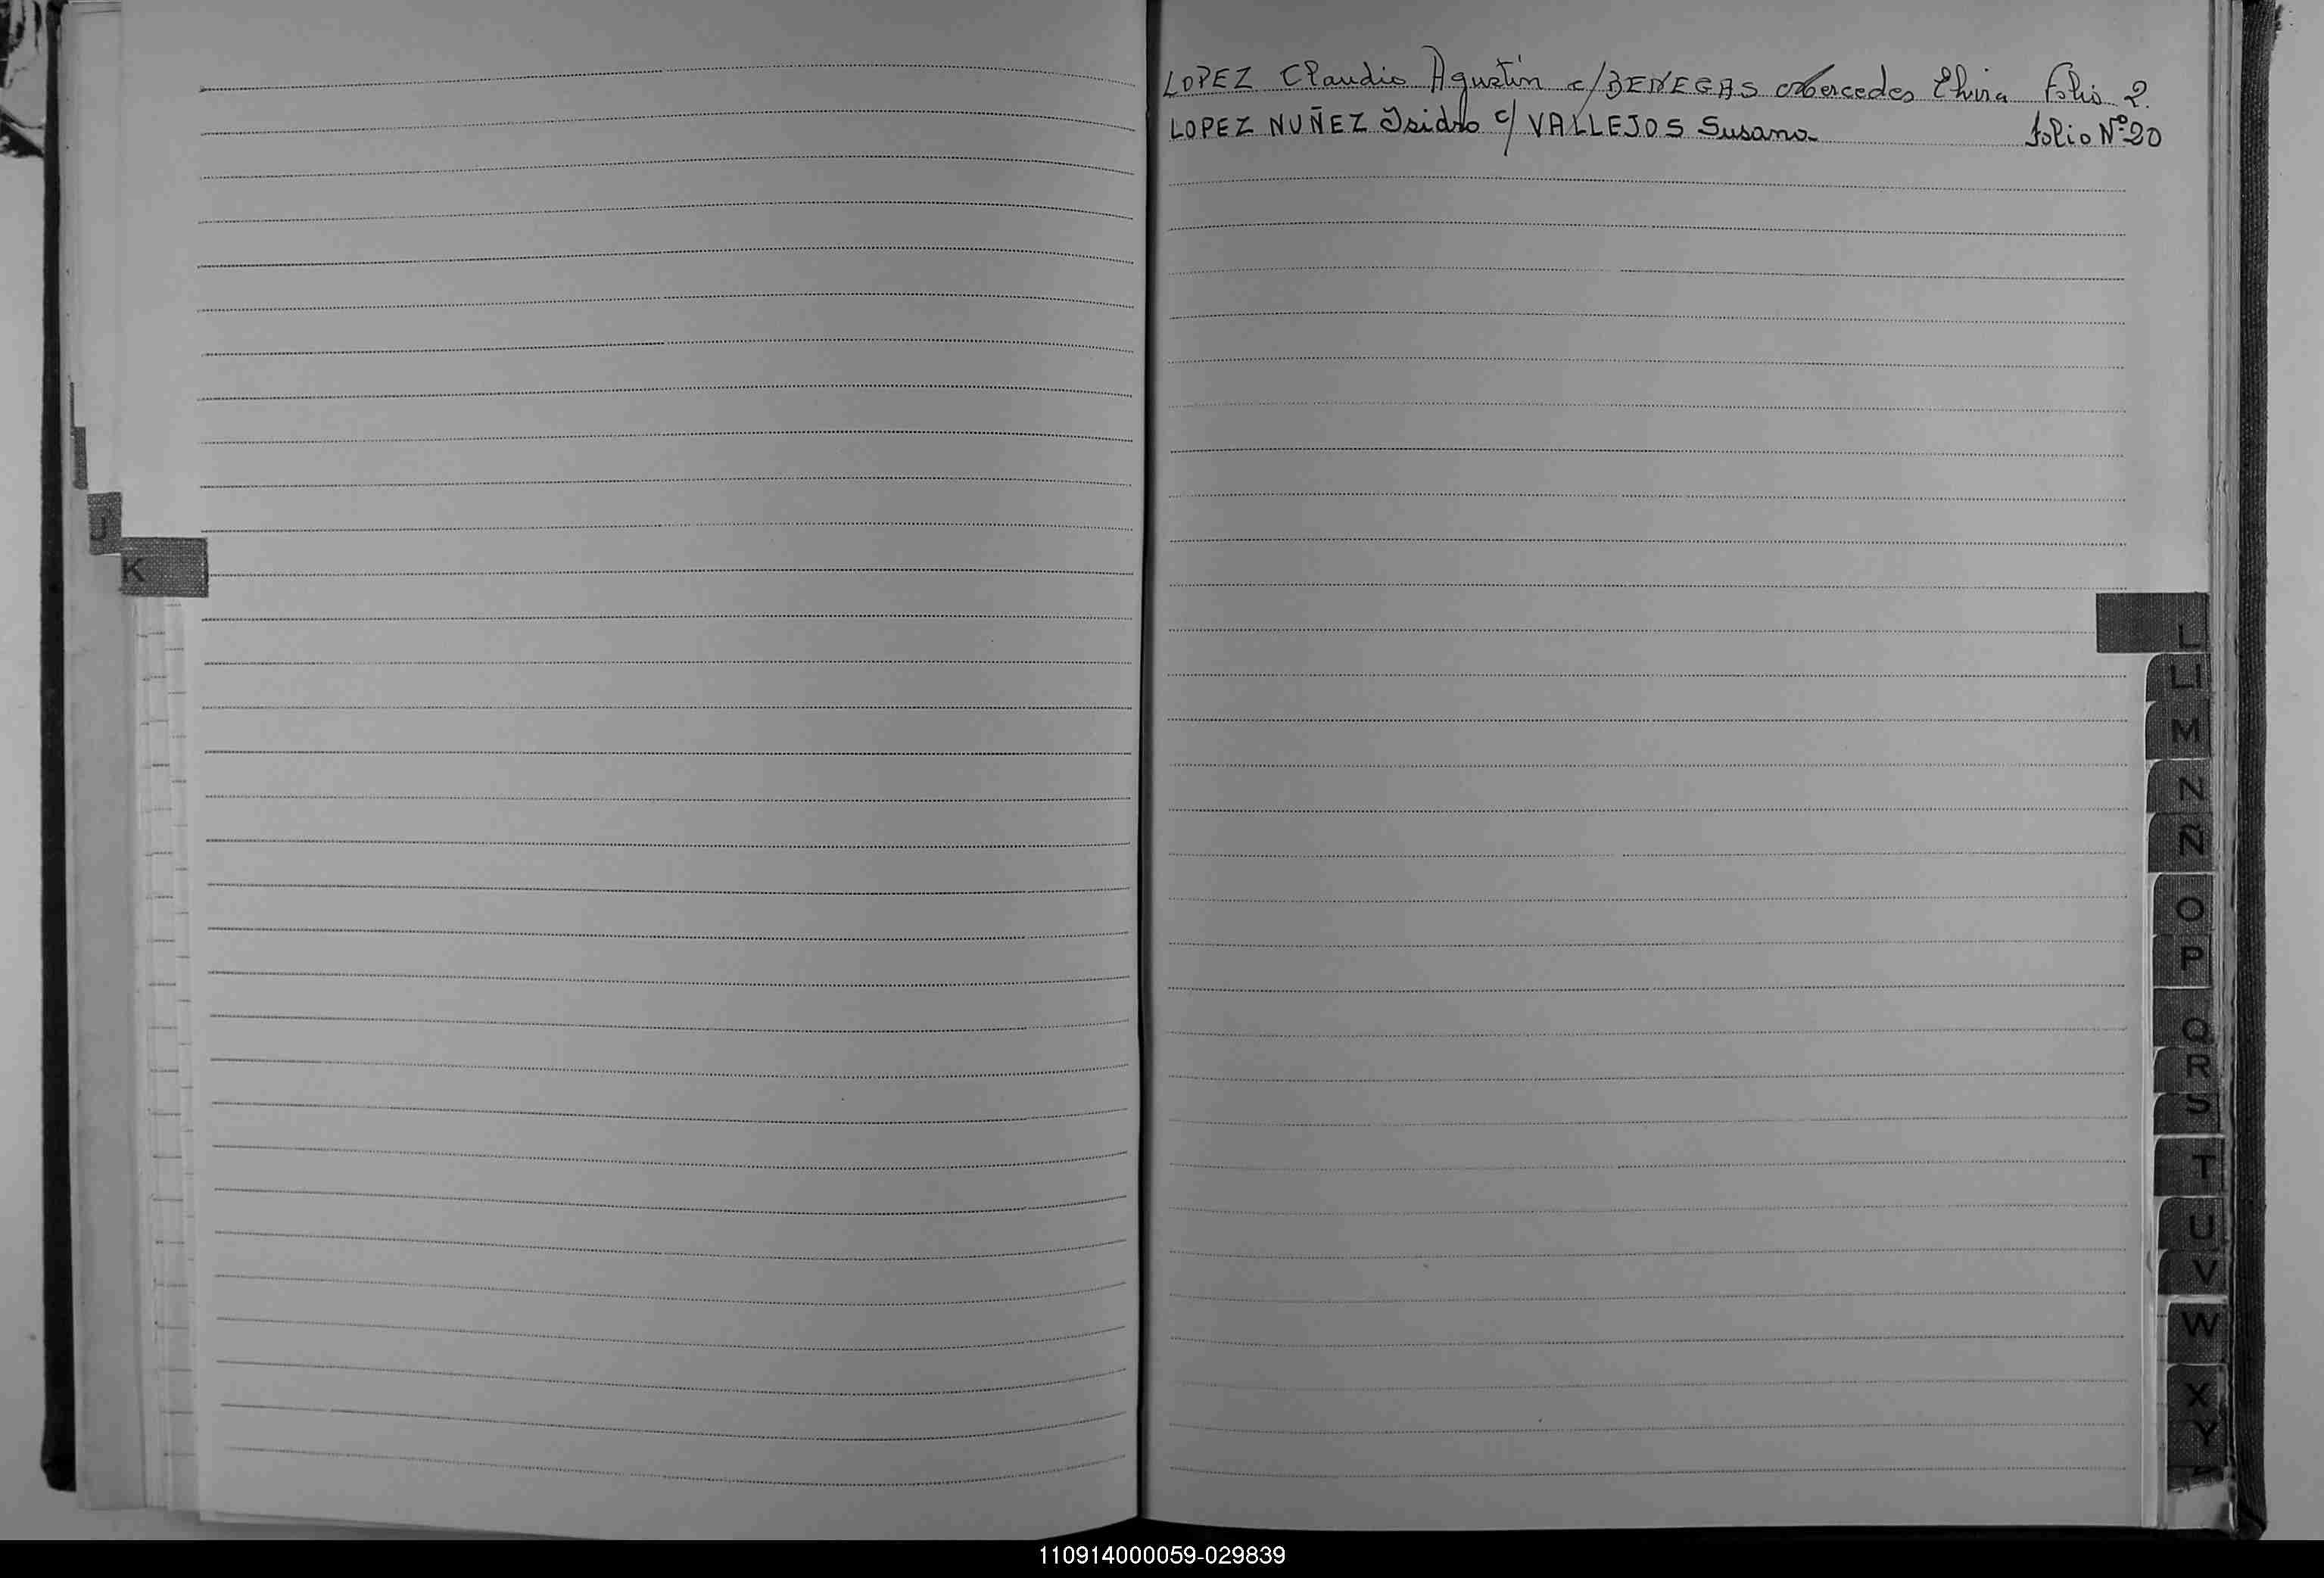 LOPEZ Claudio Agustín c/ BENEGAS Mercedes Elvira Folio 2.
LOPEZ NUÑEZ Isidro c/ VALLEJOS Susana Folio Nº 20
J
K
L
Ll
M
N
Ñ
O
P
Q
R
S
T
U
V
W
X
Y
110914000059-029839